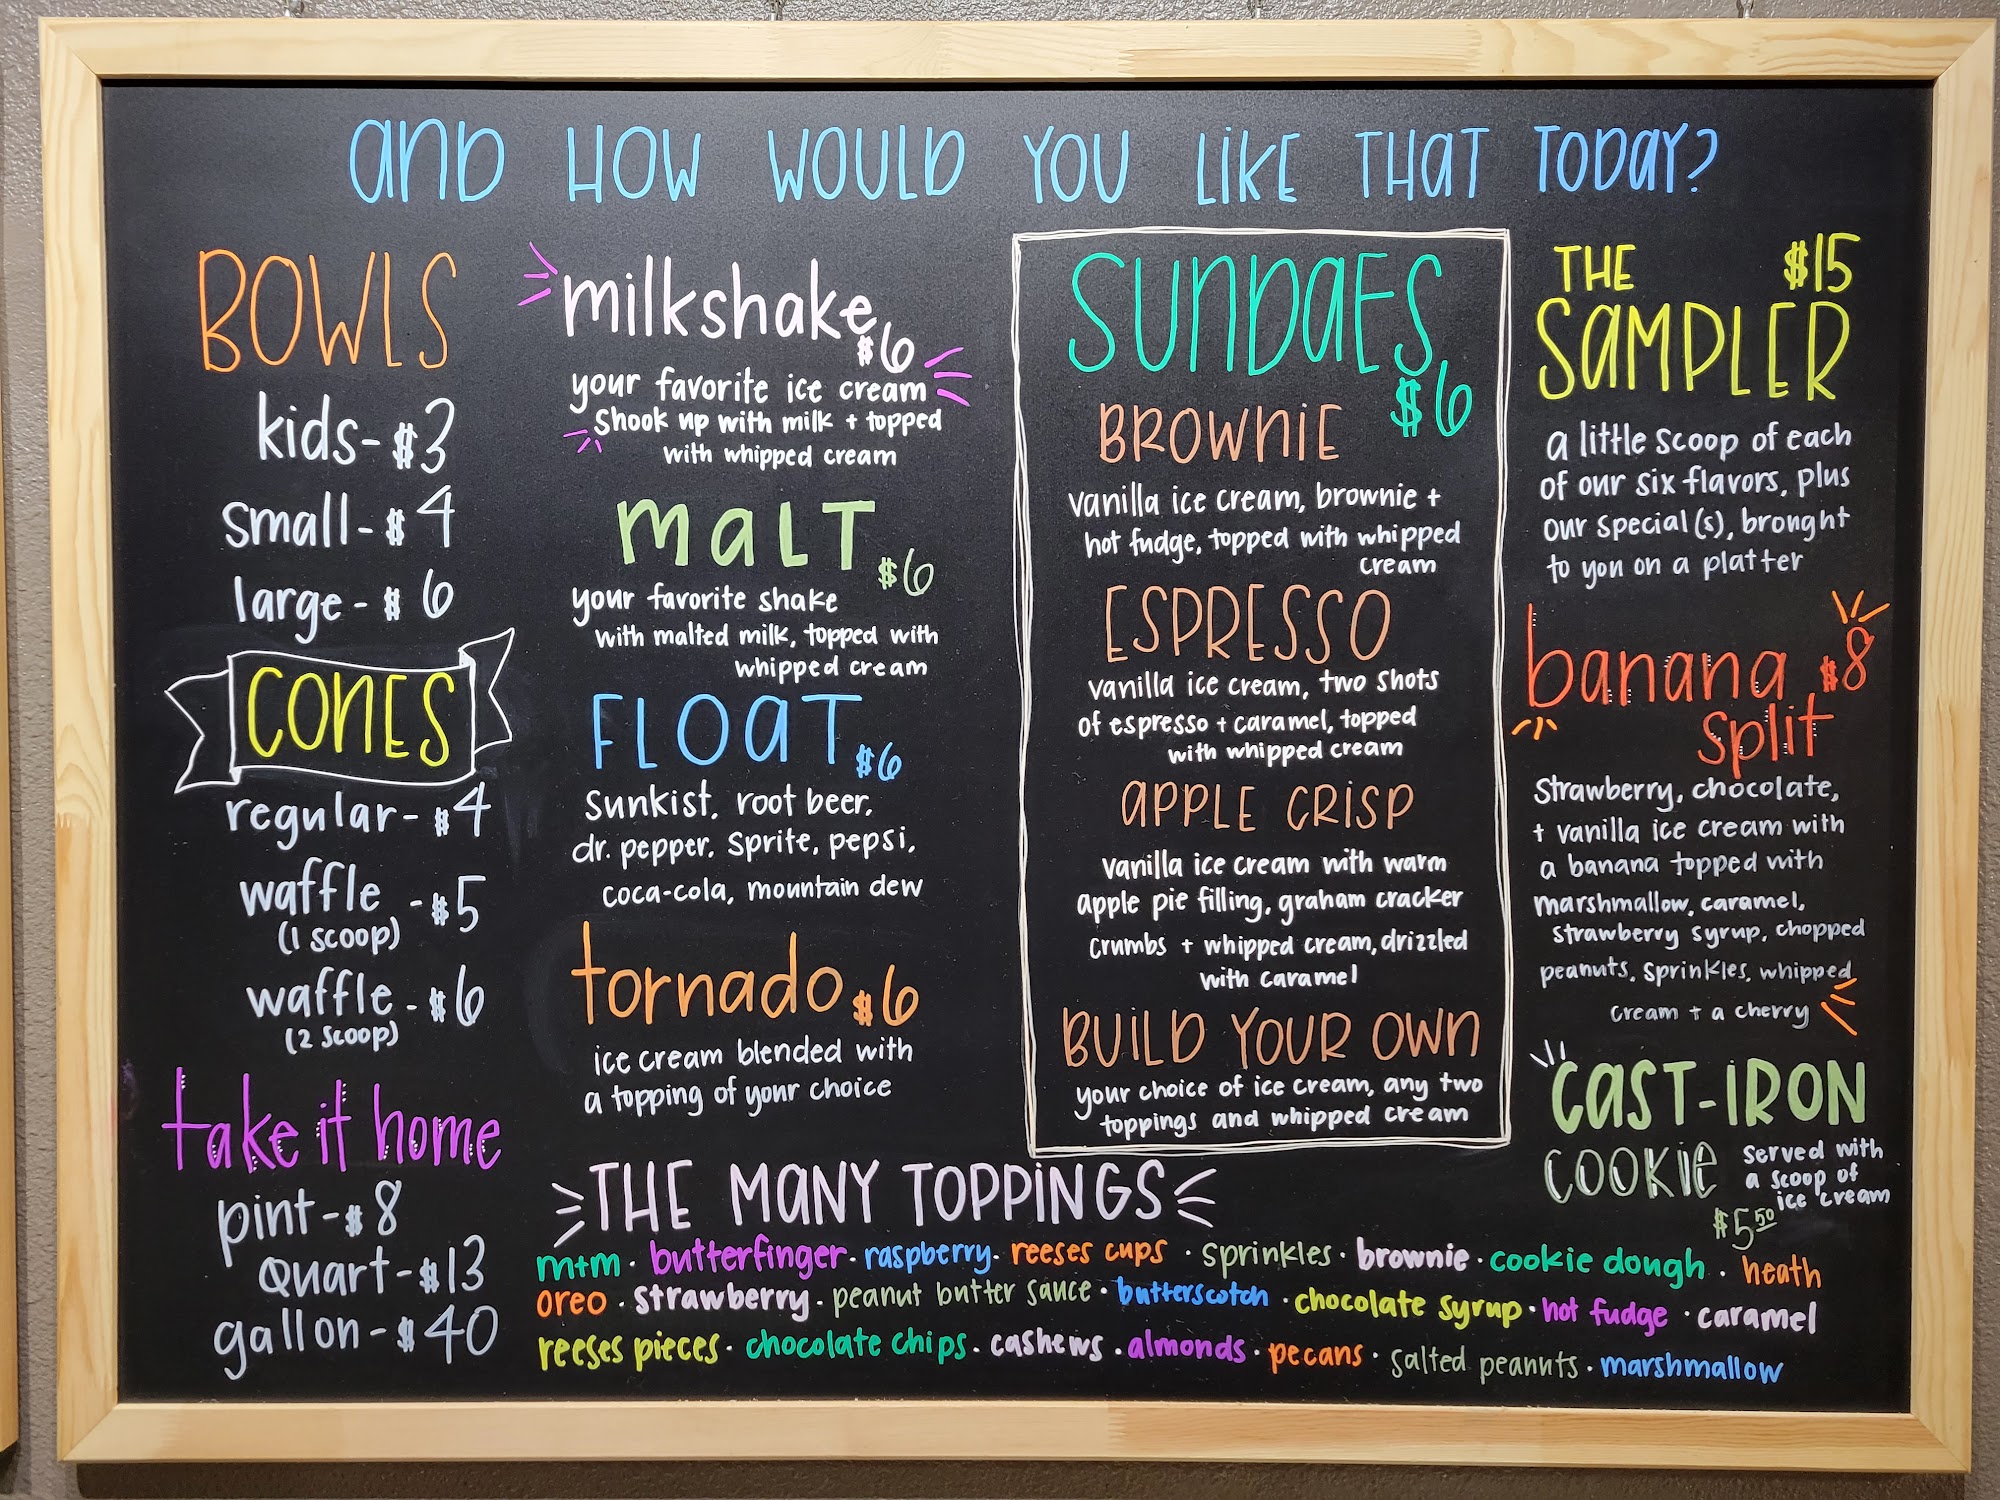 AND HOW WOULD YOU LIKE THAT TODAY?
BOWLS
kids - $3
small - $4
large - $6
CONES
regular - $4
waffle - $5
(1 scoop)
waffle - $6
(2 scoop)
take it home
pint - $8
quart - $13
gallon - $40
milkshake
$6
your favorite ice cream
shook up with milk + topped
with whipped cream
MALT
$6
your favorite shake
with malted milk, topped with
whipped cream
FLOAT $6
sunkist, root beer,
dr. pepper, sprite, pepsi,
coca-cola, mountain dew
tornado $6
ice cream blended with
a topping of your choice
SUNDAES
$6
BROWNIE
vanilla ice cream, brownie +
hot fudge, topped with whipped
cream
ESPRESSO
vanilla ice cream, two shots
of espresso + caramel, topped
with whipped cream
APPLE CRISP
vanilla ice cream with warm
apple pie filling, graham cracker
crumbs + whipped cream, drizzled
with caramel
BUILD YOUR OWN
your choice of ice cream, any two
toppings and whipped cream
THE $15
SAMPLER
a little scoop of each
of our six flavors, plus
our special(s), brought
to you on a platter
banana $8
split
strawberry, chocolate,
+ vanilla ice cream with
a banana topped with
marshmallow, caramel,
strawberry syrup, chopped
peanuts, sprinkles, whipped
cream + a cherry
CAST-IRON
COOKIE
served with
a scoop of
ice cream
$5.50
THE MANY TOPPINGS
m+m · butterfinger · raspberry · reeses cups · sprinkles · brownie · cookie dough · heath
oreo · strawberry · peanut butter sauce · butterscotch · chocolate syrup · hot fudge · caramel
reeses pieces · chocolate chips · cashews · almonds · pecans · salted peanuts · marshmallow